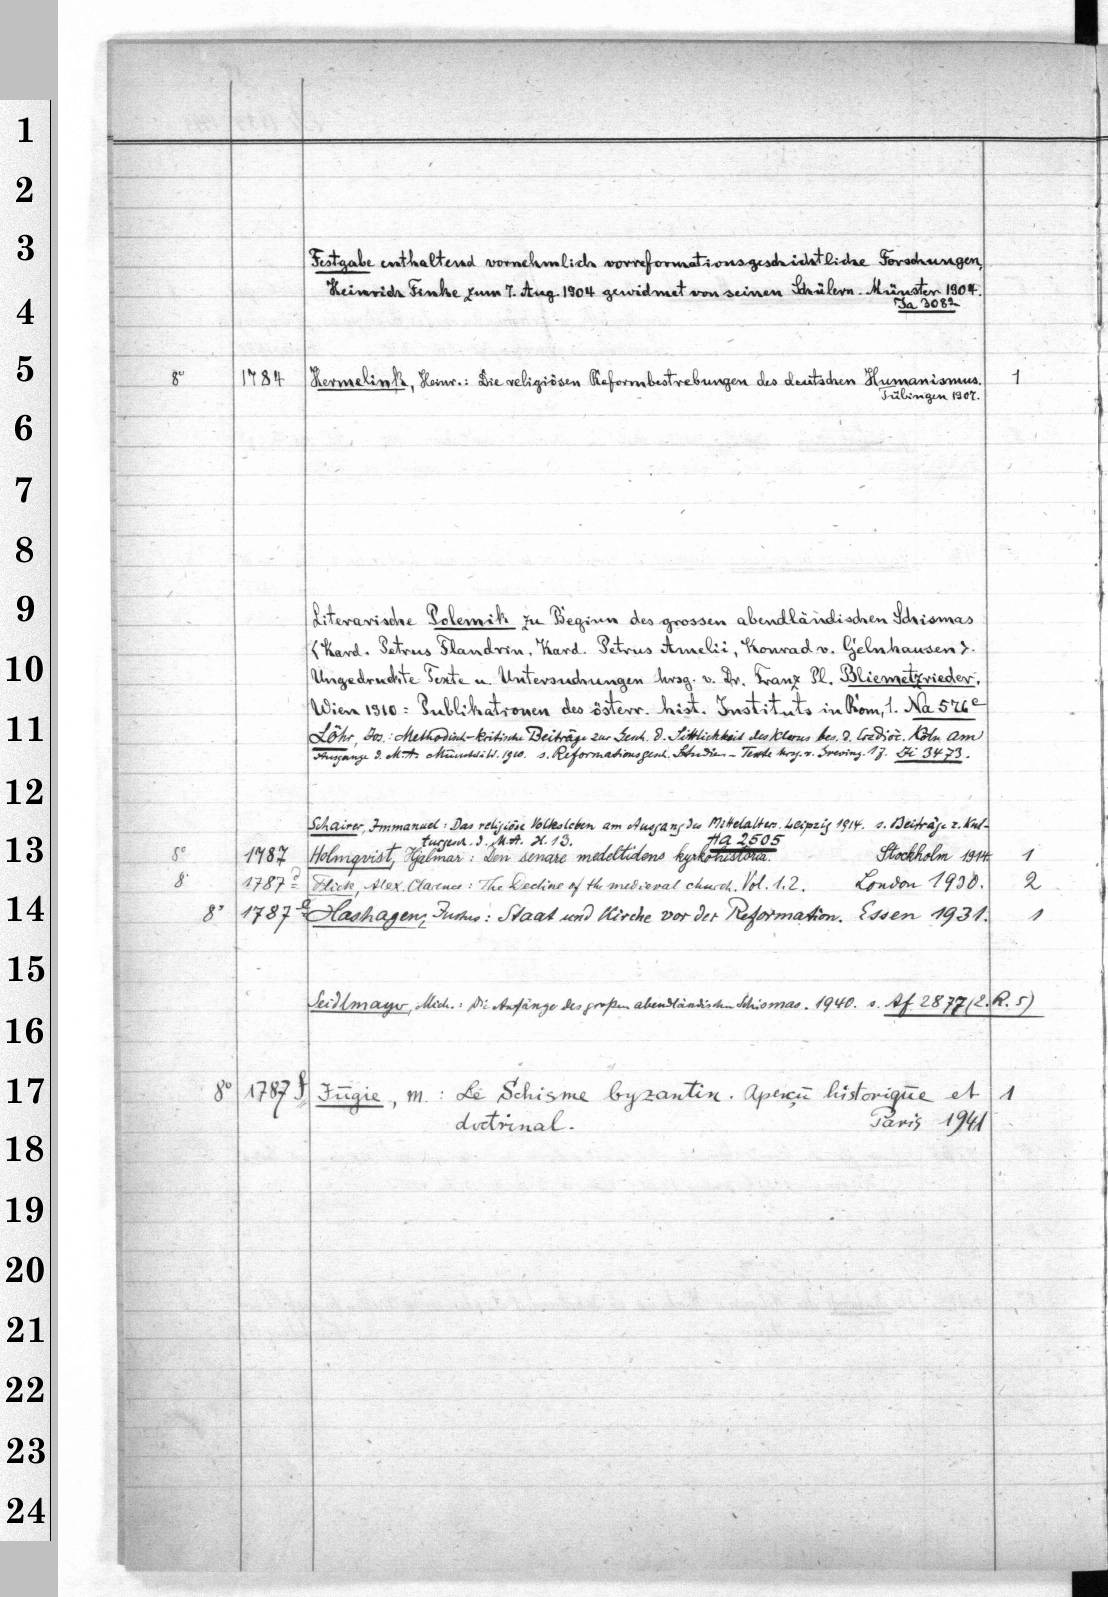 1
2
3
Festgabe enthaltend vornehmlich vorreformationsgeschichtliche Forschungen,
Heinrich Finke zum 7. Aug. 1904 gewidmet von seinen Schülern. Münster 1904.
4
Ia 3082
5
8° 1784 Hermelink, Heinr.: Die religiösen Reformbestrebungen des deutschen Humanismus. 1
Tübingen 1907.
6
7
8
9
Literarische Polemik zu Beginn des grossen abendländischen Schismas
(Kard. Petrus Flandrin, Kard. Petrus Amelii, Konrad v. Gelnhausen).
10
Ungedruckte Texte u. Untersuchungen hrsg. v. Dr. Franz Pl. Bliemetzrieder.
Wien 1910 = Publikationen des österr. hist. Instituts in Rom, 1. Na 576e
11
Löhr, Jos.: Methodisch-kritische Beiträge zur Gesch. d. Sittlichkeit des Klerus bes. d. Erzdiöc. Köln am
Ausgange d. M.A. Münster i. W. 1910. s. Reformationsgesch. Studien u. Texte hrsg. v. Greving. 17. Di 3473.
12
Schairer, Immanuel: Das religiöse Volksleben am Ausgang des Mittelalters. Leipzig 1914. s. Beiträge z. Kul-
turgesch. d. M.A. H. 13. Ha 2505
13
8° 1787 Holmqvist, Hjalmar: Den senare medeltidens kyrkohistoria. Stockholm 1914. 1
8° 1787d Flick, Alex. Clarence: The Decline of the medieval church. Vol. 1.2. London 1930. 2
14
8° 1787e Hashagen, Justus: Staat und Kirche vor der Reformation. Essen 1931. 1
15
Seidlmayer, Mich.: Die Anfänge des großen abendländischen Schismas. 1940. s. Af 2877 (2. R. 5)
16
17
8° 1787f Jugie, M.: Le Schisme byzantin. Aperçu historique et 1
doctrinal. Paris 1941
18
19
20
21
22
23
24